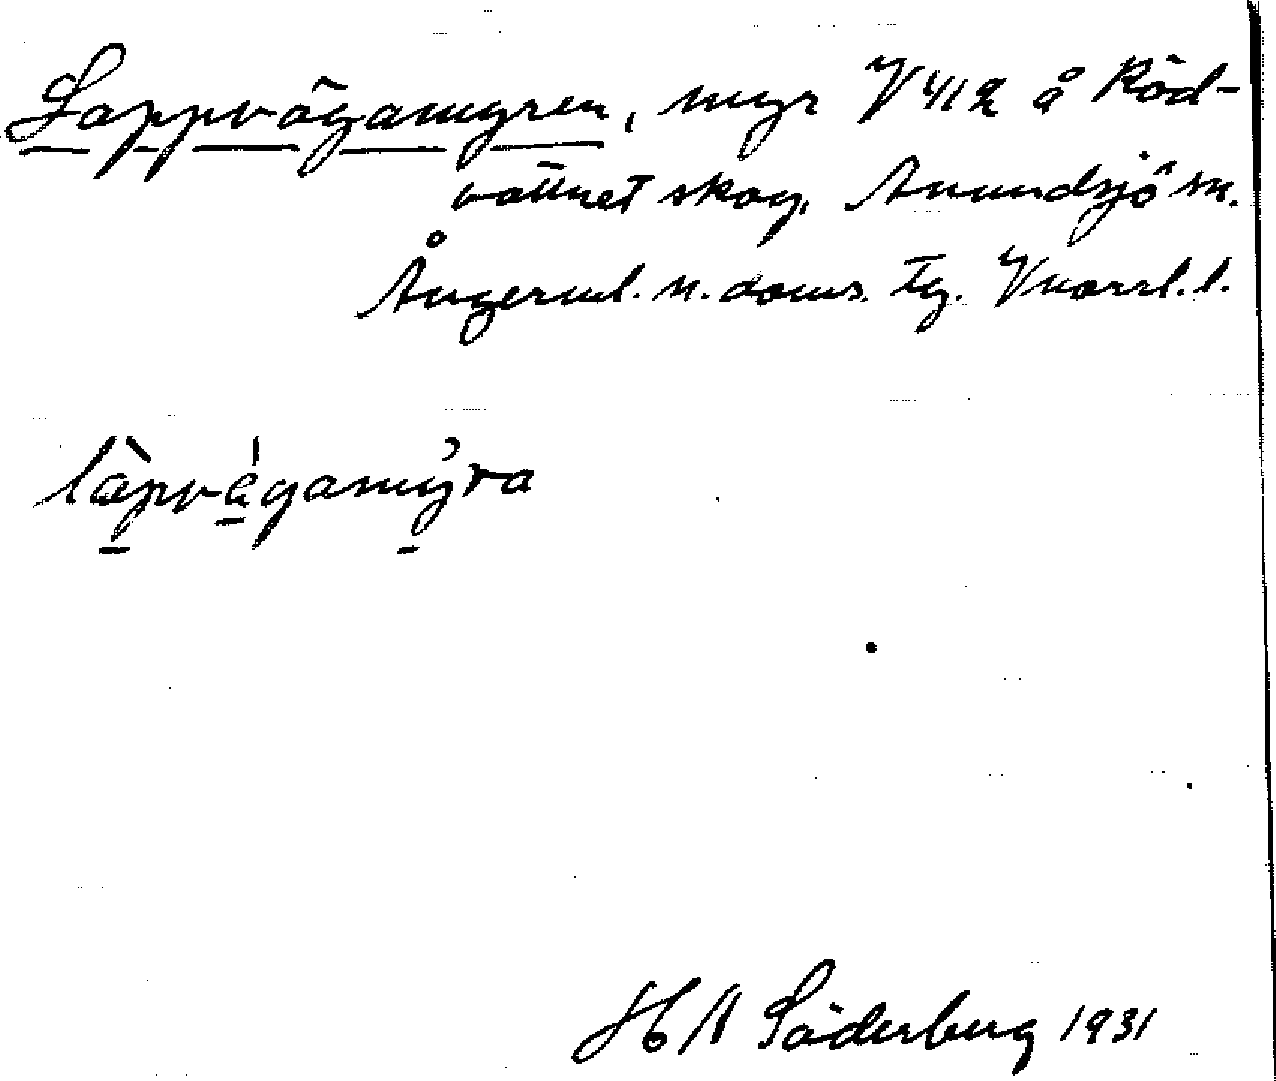 Lappvägamyren, myr V 4/1 2 å Röd-
vattnet skog, Anundsjö sn.
Ångerml. n. doms. tg. Vnorrl. l.
làpvágamy̓ra
H N Söderberg 1931